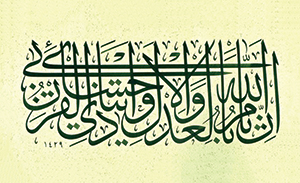 إن الله يأمر بالعدل والإحسان وإيتائ ذي القربى
١٤٢٩